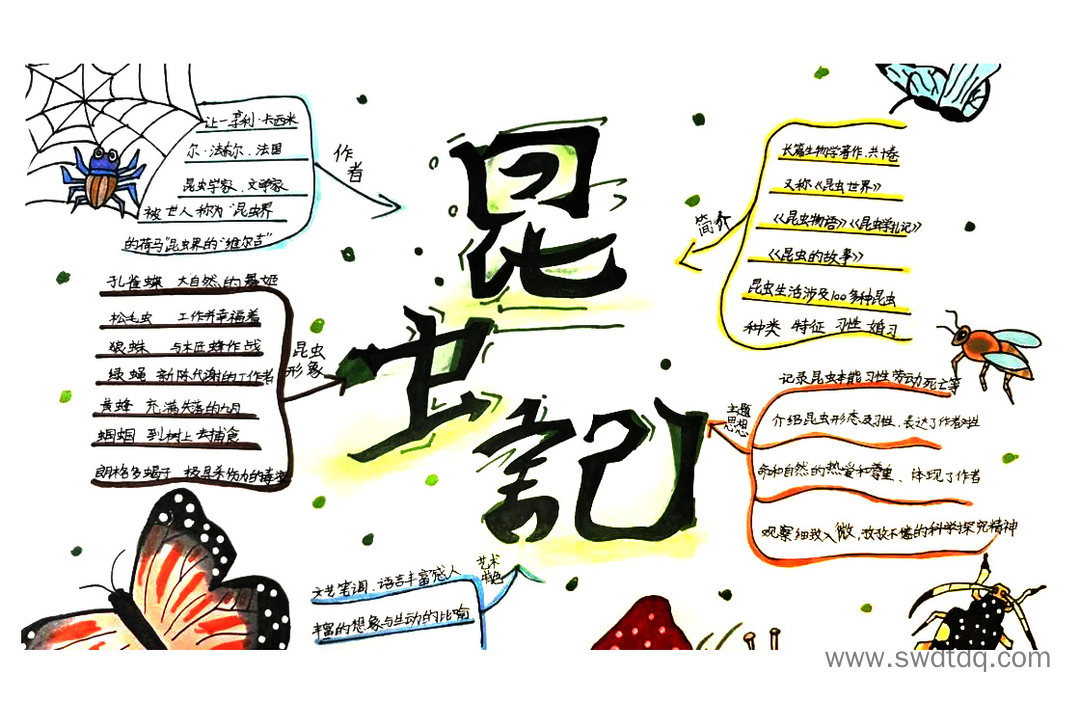 昆虫记
作者
让-亨利·卡西米
尔·法布尔、法国
昆虫学家、文学家
被世人称为"昆虫界
的荷马"昆虫界的"维尔吉"
简介
长篇生物学著作,共十卷
又称《昆虫世界》
《昆虫物语》《昆虫学札记》
《昆虫的故事》
昆虫生活涉及100多种昆虫
种类 特征 习性 婚习
昆虫
形象
孔雀蛾 大自然的舞姬
松毛虫 工作并幸福着
狼蛛 与木匠蜂作战
绿蝇 新陈代谢的工作者
黄蜂 充满失落的九月
蝈蝈 到树上去捕食
朗格多蝎子 极具杀伤力的毒
主题
思想
记录昆虫本能习性劳动死亡等
介绍昆虫形态及习性,表达了作者对生
命和自然的热爱和尊重、体现了作者
观察细致入微,孜孜不倦的科学探究精神
艺术
特色
文艺笔调,语言丰富感人
丰富的想象与生动的比喻
www.swdtdq.com